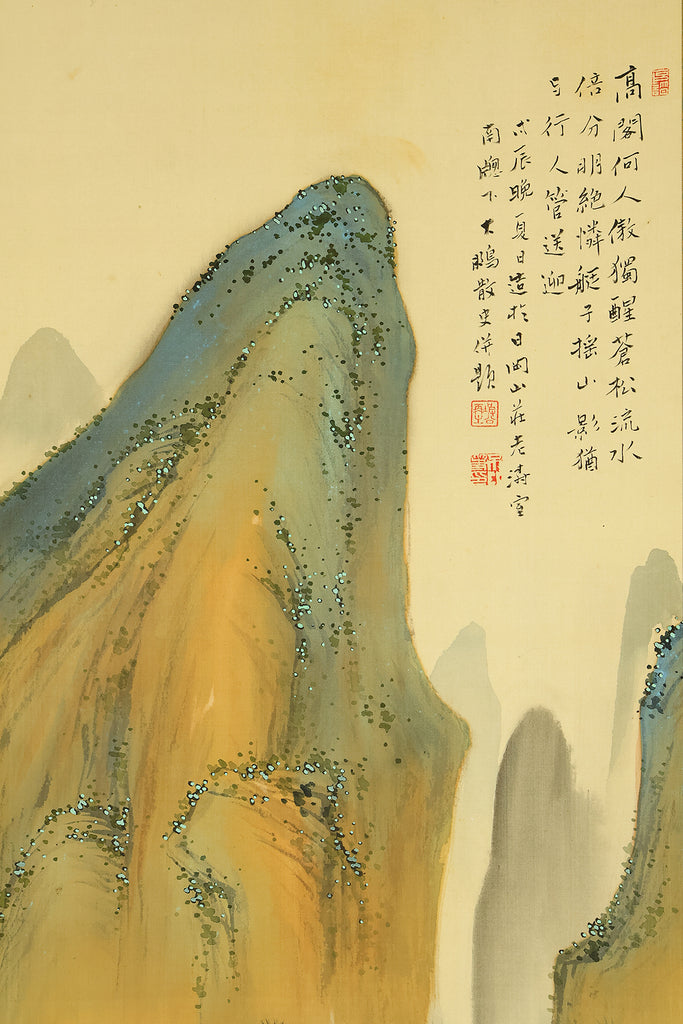 高閣何人倣獨醒蒼松流水
倍分明絶憐艇子揺山影猶
与行人管送迎
戊辰晩夏日造於日岡山莊老濤室
南窓下大鵬散史併題